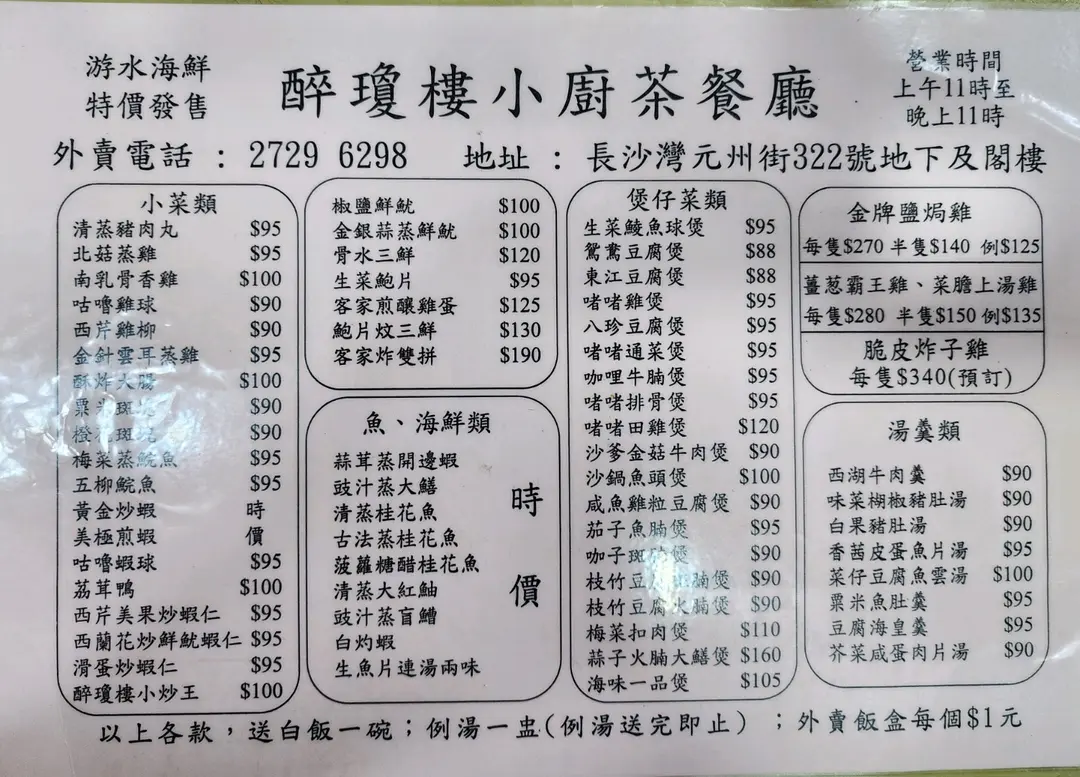 游水海鮮
特價發售
醉瓊樓小廚茶餐廳
營業時間
上午11時至
晚上11時
外賣電話 : 2729 6298 地址 : 長沙灣元州街322號地下及閣樓
小菜類
清蒸豬肉丸 $95
北菇蒸雞 $95
南乳骨香雞 $100
咕嚕雞球 $90
西芹雞柳 $90
金針雲耳蒸雞 $95
酥炸大腸 $100
粟米斑塊 $90
橙花斑塊 $90
梅菜蒸鯇魚 $95
五柳鯇魚 $95
黃金炒蝦 時
美極煎蝦 價
咕嚕蝦球 $95
荔茸鴨 $100
西芹美果炒蝦仁 $95
西蘭花炒鮮魷蝦仁 $95
滑蛋炒蝦仁 $95
醉瓊樓小炒王 $100
椒鹽鮮魷 $100
金銀蒜蒸鮮魷 $100
骨水三鮮 $120
生菜鮑片 $95
客家煎釀雞蛋 $125
鮑片炆三鮮 $130
客家炸雙拼 $190
魚、海鮮類
蒜茸蒸開邊蝦
豉汁蒸大鱔
清蒸桂花魚
古法蒸桂花魚
菠蘿糖醋桂花魚
清蒸大紅鮋
豉汁蒸盲鰽
白灼蝦
生魚片連湯兩味
時價
煲仔菜類
生菜鯪魚球煲 $95
鴛鴦豆腐煲 $88
東江豆腐煲 $88
啫啫雞煲 $95
八珍豆腐煲 $95
啫啫通菜煲 $95
咖哩牛腩煲 $95
啫啫排骨煲 $95
啫啫田雞煲 $120
沙爹金菇牛肉煲 $90
沙鍋魚頭煲 $100
咸魚雞粒豆腐煲 $90
茄子魚腩煲 $95
咖子斑腩煲 $90
枝竹豆腐斑腩煲 $90
枝竹豆腐火腩煲 $90
梅菜扣肉煲 $110
蒜子火腩大鱔煲 $160
海味一品煲 $105
金牌鹽焗雞
每隻$270 半隻$140 例$125
薑葱霸王雞、菜膽上湯雞
每隻$280 半隻$150 例$135
脆皮炸子雞
每隻$340(預訂)
湯羹類
西湖牛肉羹 $90
味菜椒椒豬肚湯 $90
白果豬肚湯 $90
香茜皮蛋魚片湯 $95
菜仔豆腐魚雲湯 $100
粟米魚肚羹 $95
豆腐海皇羹 $95
芥菜咸蛋肉片湯 $90
以上各款，送白飯一碗；例湯一盅(例湯送完即止) ；外賣飯盒每個$1元